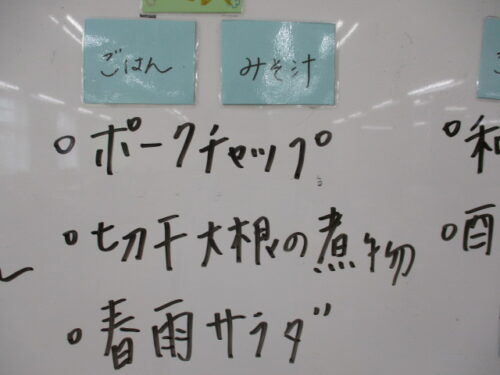 ごはん みそ汁
○ ポークチャップ
○ 切干大根の煮物
○ 春雨サラダ